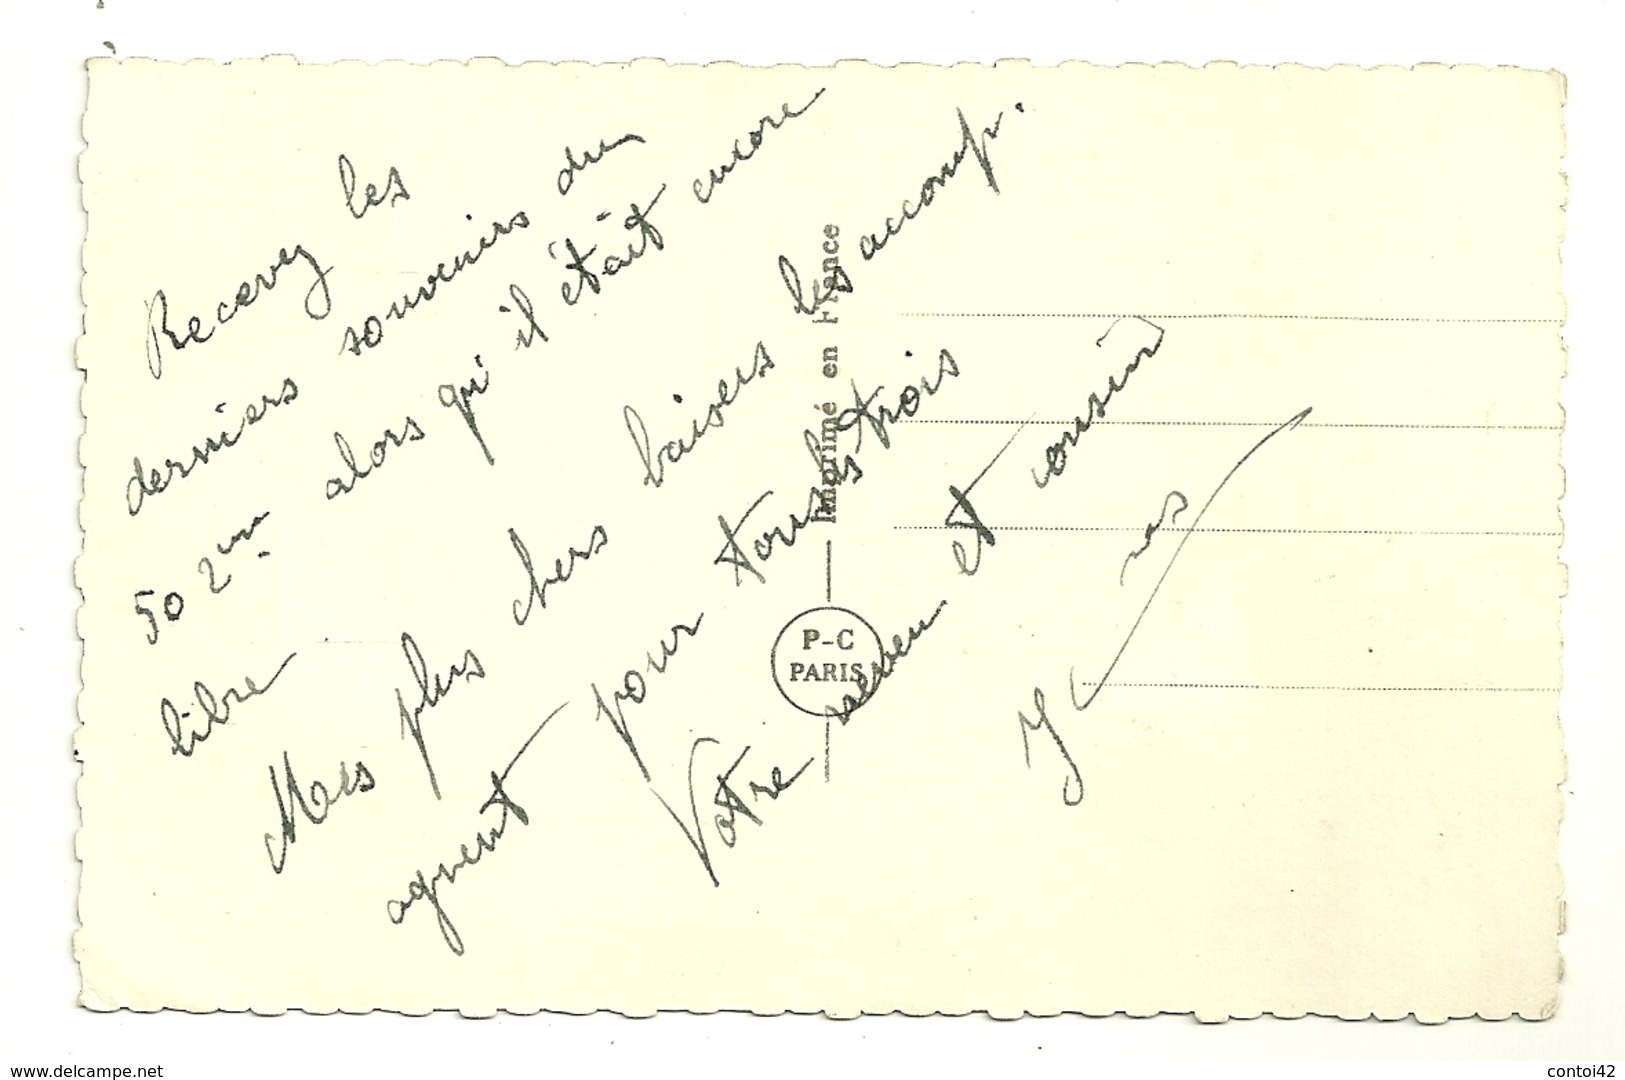 Recevez les
derniers souvenirs du
50 2em alors qu'il était encore
libre
Mes plus chers baisers les accomp.
agnent pour tous les trois
Votre neveu et cousin
Imprimé en France
P-C
PARIS
www.delcampe.net
contoi42